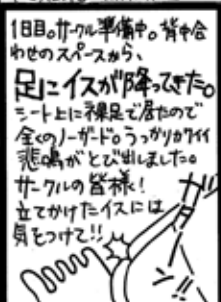 1日目。サークル準備中。背中合
わせのスペースから、
足にイスが降ってきた。
シート上に裸足で居たので
全くのノーガード。うっかりカワイイ
悲鳴がとび出しました。
サークルの皆様!
立てかけたイスには
気をつけて!!
ガ
ン!!